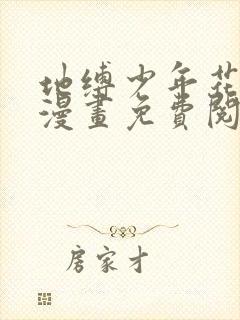 地缚少年花
漫畫免費閱
房家才